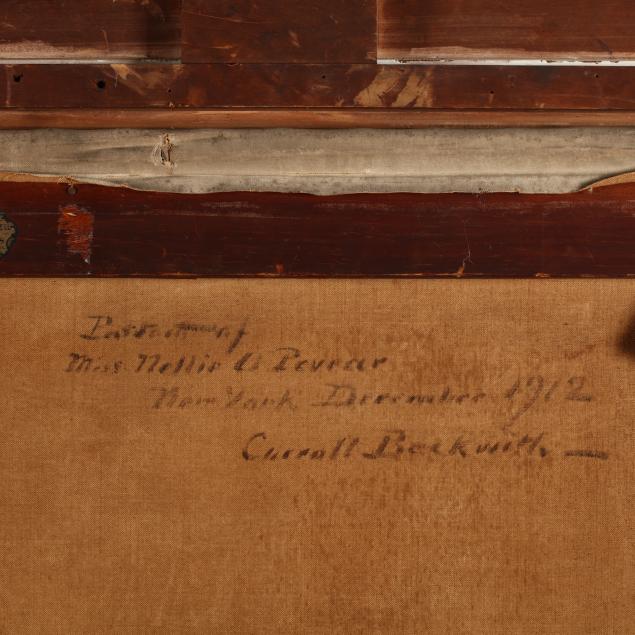 Portrait of
Miss Nellie O Pevear
New York December 1912
Carroll Beckwith